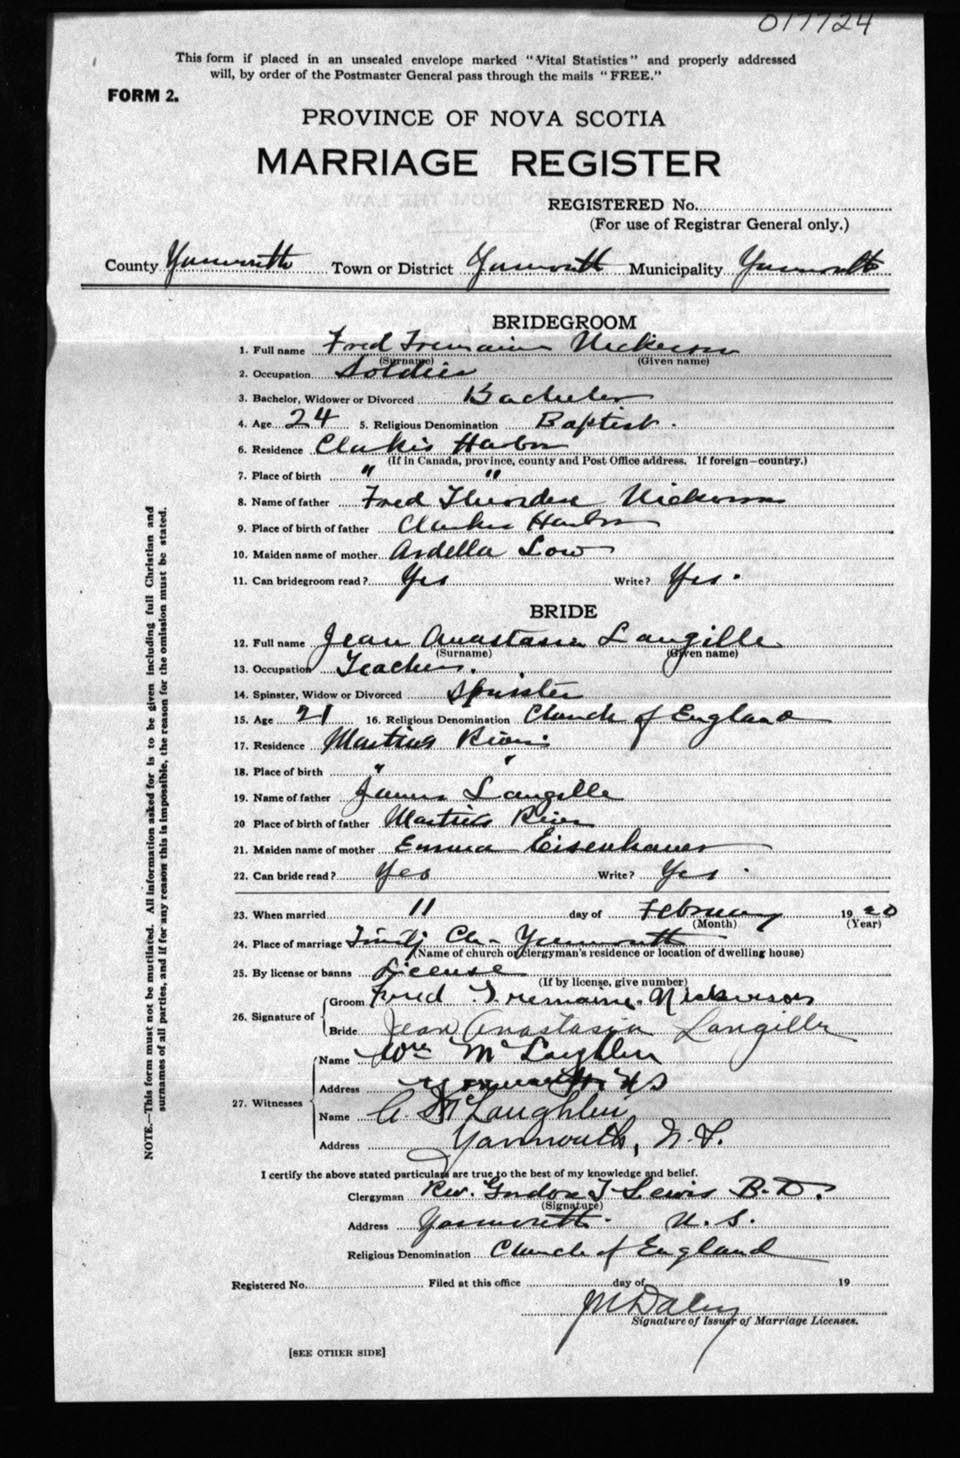 017724
This form if placed in an unsealed envelope marked "Vital Statistics" and properly addressed
will, by order of the Postmaster General pass through the mails "FREE."
FORM 2.
PROVINCE OF NOVA SCOTIA
MARRIAGE REGISTER
REGISTERED No.
(For use of Registrar General only.)
County Yarmouth Town or District Yarmouth Municipality Yarmouth
BRIDEGROOM
1. Full name Fred Tremaine Nickerson
(Surname) (Given name)
2. Occupation Soldier
3. Bachelor, Widower or Divorced Bachelor
4. Age 24 5. Religious Denomination Baptist.
6. Residence Clarkis Harbor
(If in Canada, province, county and Post Office address. If foreign—country.)
7. Place of birth " "
8. Name of father Fred Nickerson
9. Place of birth of father Clarkes Harbor
10. Maiden name of mother Ardella Low
11. Can bridegroom read? Yes Write? Yes.
BRIDE
12. Full name Jean Anastasia Langille
(Surname) (Given name)
13. Occupation Teacher.
14. Spinster, Widow or Divorced Spinster
15. Age 21 16. Religious Denomination Church of England
17. Residence Martins River
18. Place of birth " "
19. Name of father James Langille
20 Place of birth of father Martins River
21. Maiden name of mother Emma Eisenhauer
22. Can bride read? Yes Write? Yes.
23. When married 11 day of February 1920
(Month) (Year)
24. Place of marriage Trinity Ch- Yarmouth
(Name of church or clergyman's residence or location of dwelling house)
25. By license or banns License
(If by license, give number)
26. Signature of
Groom Fred Tremaine Nickerson
Bride Jean Anastasia Langille
27. Witnesses
Name Wm McLaughlin
Address Yarmouth NS
Name A. McLaughlin
Address Yarmouth, N.S.
I certify the above stated particulars are true to the best of my knowledge and belief.
Clergyman Rev. Gordon T Lewis B.D.
(Signature)
Address Yarmouth. N.S.
Religious Denomination Church of England
Registered No. Filed at this office day of 19
JM Daley
Signature of Issuer of Marriage Licenses.
[SEE OTHER SIDE]
NOTE.—This form must not be mutilated. All information asked for is to be given including full Christian and
surnames of all parties, and if for any reason this is impossible, the reason for the omission must be stated.